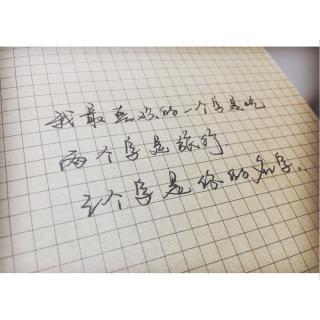 我最喜欢的一个字是吃
两个字是旅行.
三个字是你的名字。